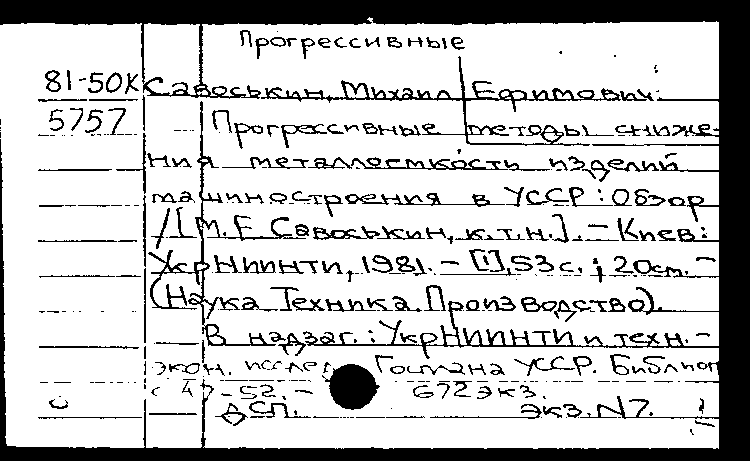 Прогрессивные
81-50К Савоськин, Михаил Ефимович.
5757 Прогрессивные методы сниже-
ния металлоемкости изделий
машиностроения в УССР: Обзор
/[М.Е. Савоськин, к.т.н.]. - Киев:
УкрНИИНТИ, 1981. - [1], 53 с.; 20 см. -
(Наука. Техника. Производство).
В надзаг.: УкрНИИНТИ и техн.-
экон. исслед Госплана УССР. Библиог
с 47-52. - 672 экз.
ДСП. экз. N7.